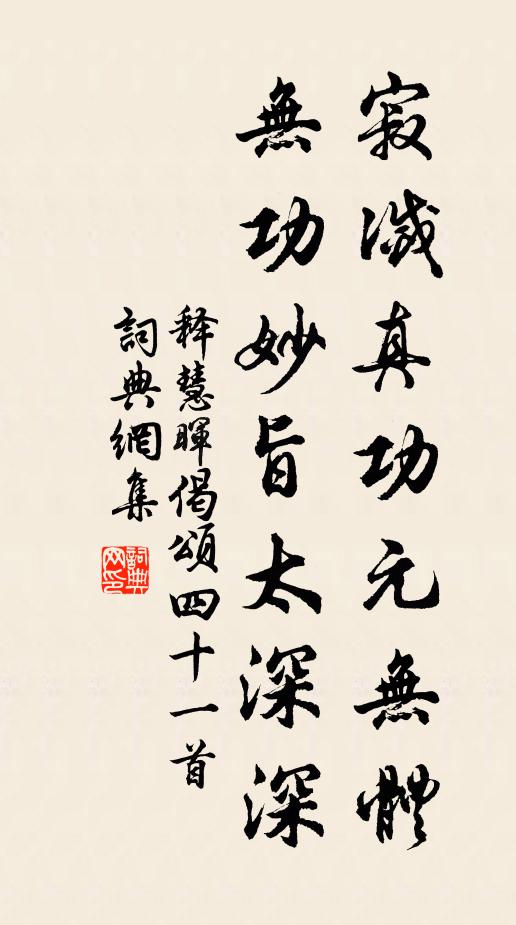 寂滅真功元無體
無功妙旨太深深
释慧暉偈頌四十一首
詞典網集
詞典网印